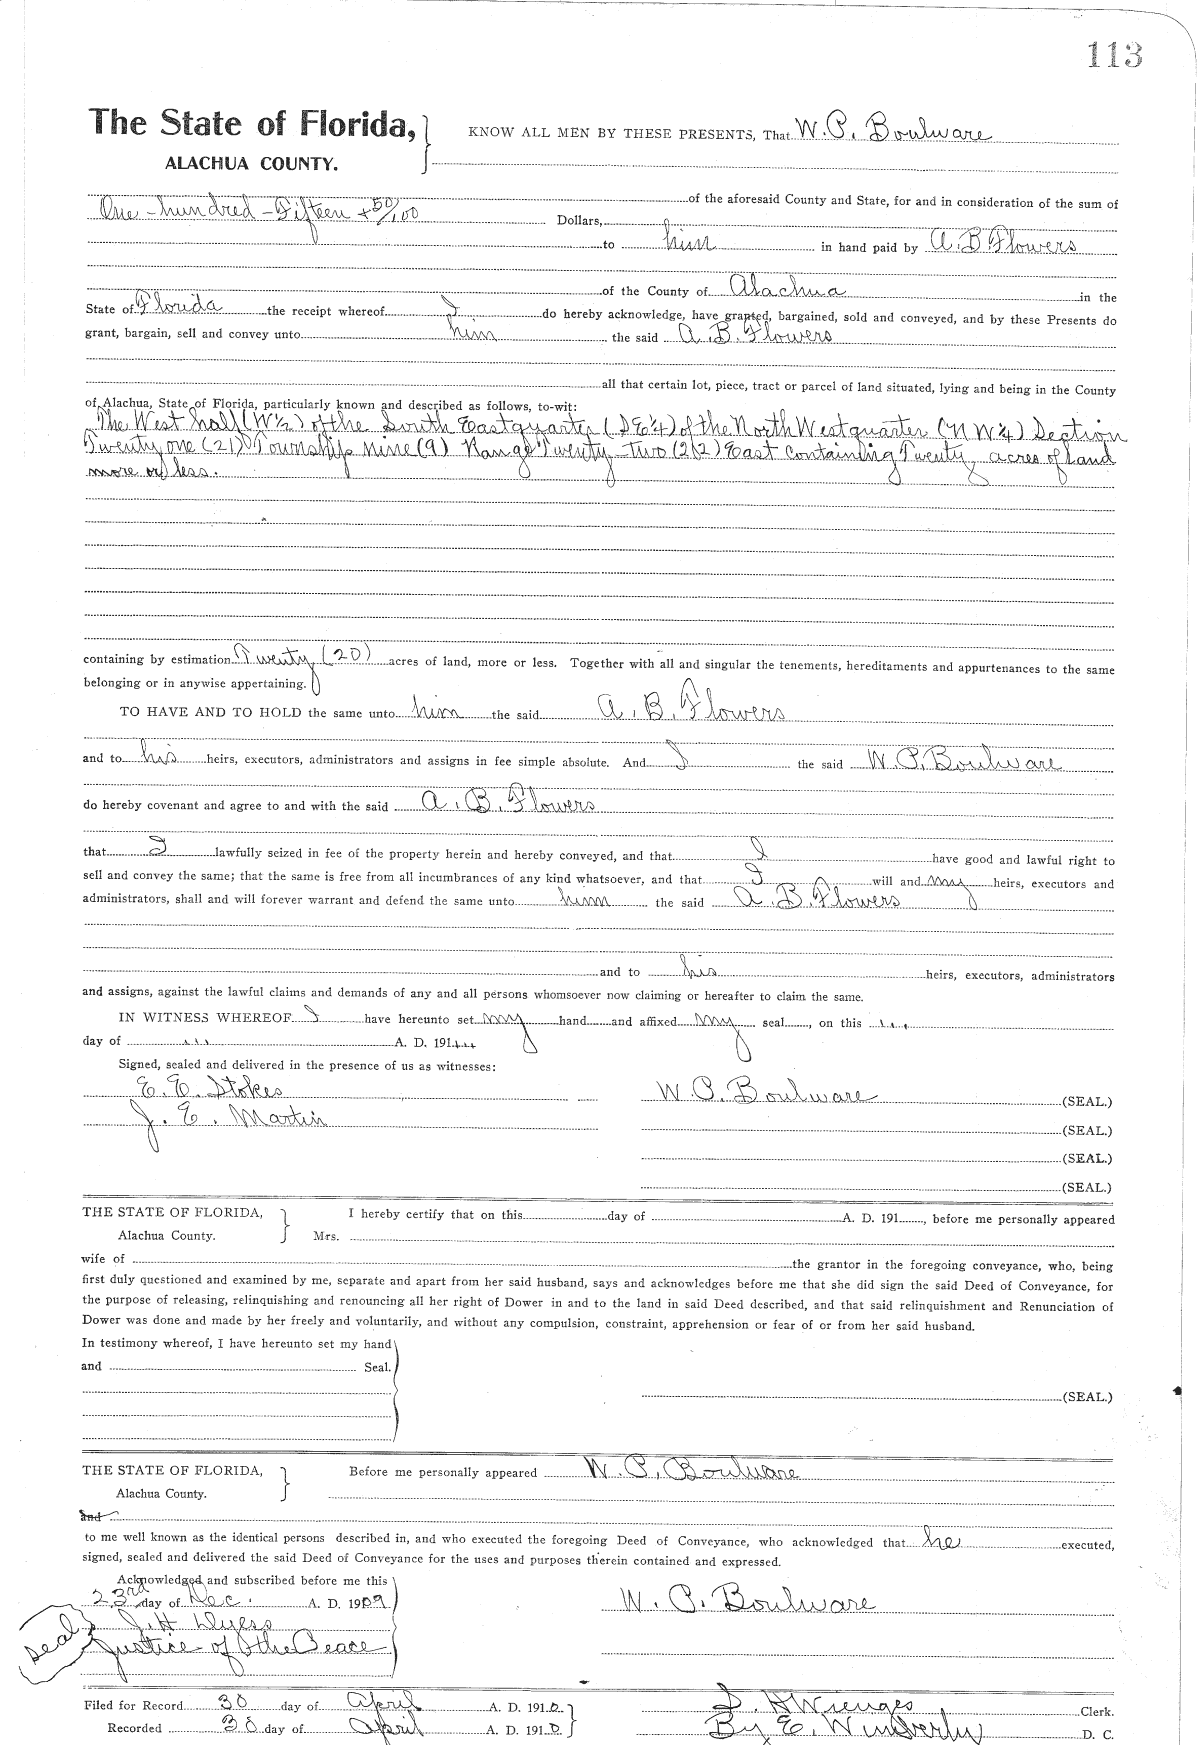 113
The State of Florida,
ALACHUA COUNTY.
KNOW ALL MEN BY THESE PRESENTS, That W. P. Boulware
of the aforesaid County and State, for and in consideration of the sum of
One hundred - Fifteen + 50/100 Dollars,
to him in hand paid by A. B. Flowers
of the County of Alachua in the
State of Florida the receipt whereof I do hereby acknowledge, have granted, bargained, sold and conveyed, and by these Presents do
grant, bargain, sell and convey unto him the said A. B. Flowers
all that certain lot, piece, tract or parcel of land situated, lying and being in the County
of Alachua, State of Florida, particularly known and described as follows, to-wit:
The West half (W½) of the South East quarter (SE¼) of the North West quarter (NW¼) Section
Twenty one (21) Township nine (9) Range Twenty-two (22) East containing Twenty acres of land
more or less.
containing by estimation Twenty (20) acres of land, more or less. Together with all and singular the tenements, hereditaments and appurtenances to the same
belonging or in anywise appertaining.
TO HAVE AND TO HOLD the same unto him the said A. B. Flowers
and to his heirs, executors, administrators and assigns in fee simple absolute. And I the said W. P. Boulware
do hereby covenant and agree to and with the said A. B. Flowers
that I lawfully seized in fee of the property herein and hereby conveyed, and that I have good and lawful right to
sell and convey the same; that the same is free from all incumbrances of any kind whatsoever, and that I will and my heirs, executors and
administrators, shall and will forever warrant and defend the same unto him the said A. B. Flowers
and to his heirs, executors, administrators
and assigns, against the lawful claims and demands of any and all persons whomsoever now claiming or hereafter to claim the same.
IN WITNESS WHEREOF I have hereunto set my hand and affixed my seal, on this
day of A. D. 191
Signed, sealed and delivered in the presence of us as witnesses:
E. E. Stokes W. P. Boulware (SEAL.)
J. E. Martin (SEAL.)
(SEAL.)
(SEAL.)
THE STATE OF FLORIDA,
Alachua County.
I hereby certify that on this day of A. D. 191 , before me personally appeared
Mrs.
wife of the grantor in the foregoing conveyance, who, being
first duly questioned and examined by me, separate and apart from her said husband, says and acknowledges before me that she did sign the said Deed of Conveyance, for
the purpose of releasing, relinquishing and renouncing all her right of Dower in and to the land in said Deed described, and that said relinquishment and Renunciation of
Dower was done and made by her freely and voluntarily, and without any compulsion, constraint, apprehension or fear of or from her said husband.
In testimony whereof, I have hereunto set my hand
and Seal.
(SEAL.)
THE STATE OF FLORIDA,
Alachua County.
Before me personally appeared W. P. Boulware
and
to me well known as the identical persons described in, and who executed the foregoing Deed of Conveyance, who acknowledged that he executed,
signed, sealed and delivered the said Deed of Conveyance for the uses and purposes therein contained and expressed.
Acknowledged and subscribed before me this
23rd day of Dec. A. D. 1909 W. P. Boulware
J. H. Dyess
seal Justice of the Peace
Filed for Record 30 day of April A. D. 1910. S. H. Wienges Clerk.
Recorded 30 day of April A. D. 1910. By E. Wimberly D. C.